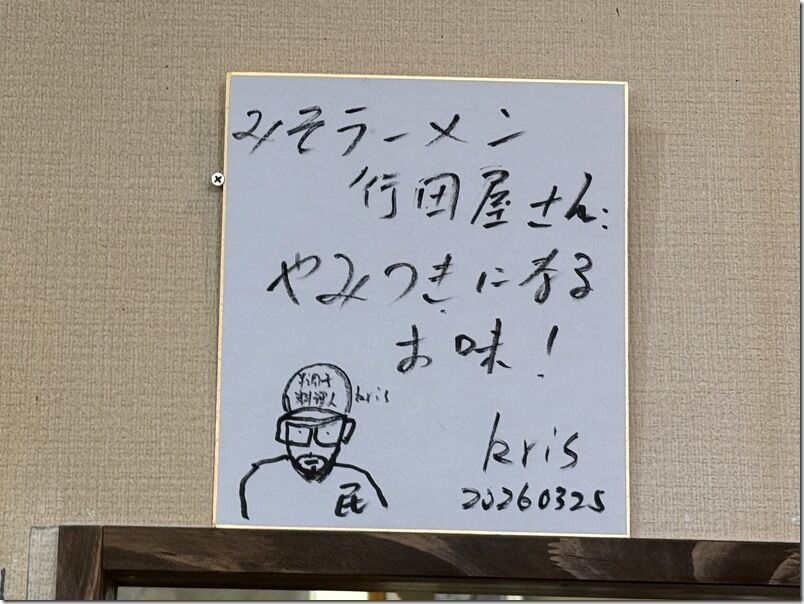 みそラーメン
行田屋さん:
やみつきになる
お味!
料理人
kris
民
kris
20260325